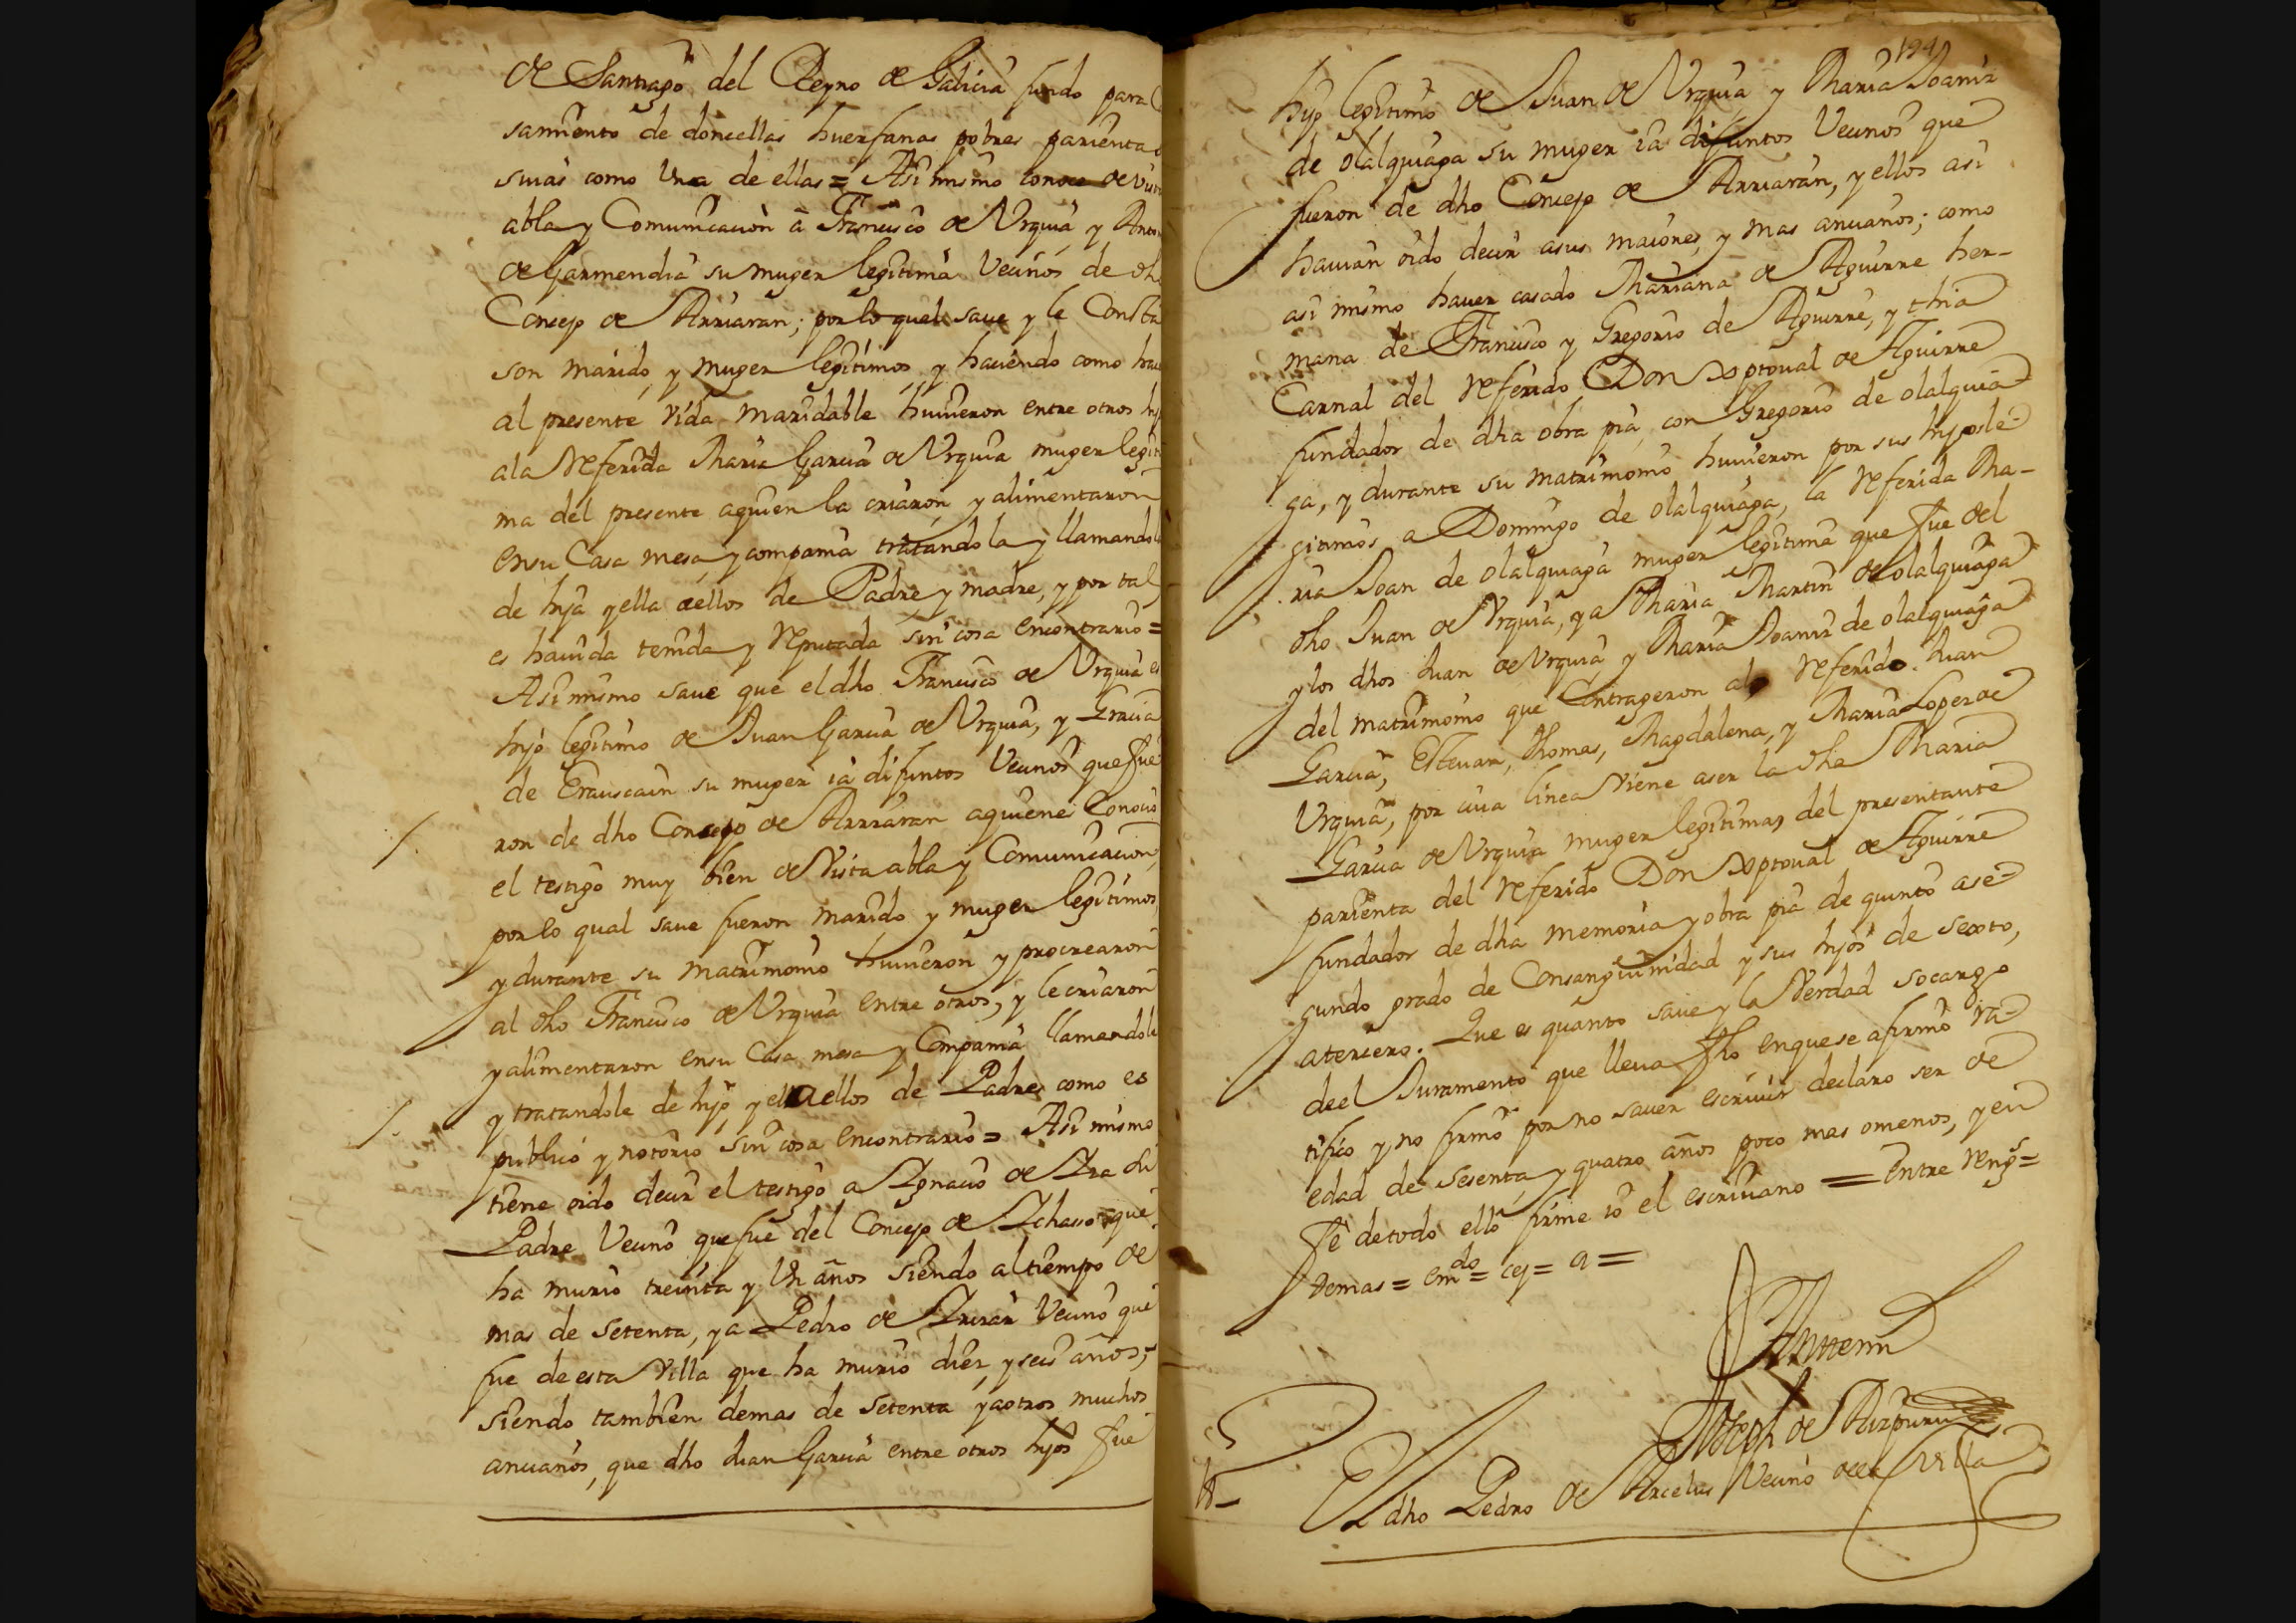 de Santiago del Reyno de Galicia fundo para
samiento de doncellas huerfanas pobres parientas
suias como Una de ellas = Asi mismo conoce de vis
abla y Comunicacion â Francisco de Vrquia y
de Garmendia su muger legitima Vecinos de dh
Concejo de Arriaran; por lo qual saue y le Consta
son marido y muger legitimos y haciendo como hac
al presente vida maridable huuieron entre otros hij
ala referida Maria Garcia de Vrquia muger legiti
ma del presente aquien la criaron y alimentaron
ensu Casa mesa y compania tratandola y llamandola
de hija y ella aellos de Padre y madre, y por tal
es hauida tenida y reputada sin cosa encontrario =
Asi mismo saue que el dho Francisco de Vrquia es
hijo legitimo de Juan Garcia de Vrquia, y Gracia
de Erauscain su muger ia difuntos Vecinos que fue
ron de dho Concejo de Arriaran aquienes Conocio
el testigo muy bien de Vista abla y Comunicacion,
por lo qual saue fueron marido y muger legitimos,
y durante su matrimonio huuieron y procrearon
al dho Francisco de Vrquia entre otros, y le criaron
y alimentaron ensu Casa mesa y Compania llamandole
y tratandole de hijo y el aellos de Padres como es
publico y notorio sin cosa encontrario = Asi mismo
tiene oido decir el testigo a Ignacio de
Padre Vecino que fue del Concejo de Ichasso que
ha murio treinta y Un años siendo altiempo de
mas de setenta, y a Pedro de Vecino que
fue de esta Villa que ha murio diez y seis años,
siendo tambien demas de setenta y aotros muchos
ancianos, que dho Juan Garcia entre otros hijos fue
194
hijo legitimo de Juan de Vrquia y Maria Joaniz
de olalquiaga su muger ia difuntos Vecinos que
fueron de dho Concejo de Arriaran, y ellos asi
hauian oido decir asus maiores, y mas ancianos; como
asi mismo hauer casado Mariana de Aguirre her-
mana de Francisco y Gregorio de Aguirre, y thia
Carnal del referido Don Xptoual de Aguirre
fundador de dha obra pia con Gregorio de olalquia
ga, y durante su matrimonio huuieron por sus hijos le-
gitimos a Domingo de olalquiaga, la referida Ma-
ria Joan de olalquiaga muger legitima que fue del
dho Juan de Vrquia, y a Maria Martin de olalquiaga
y los dhos Juan de Vrquia y Maria Joaniz de olalquiaga
del matrimonio que Contrageron al referido Juan
Garcia, Esteuan, Thomas, Magdalena, y Maria Lopez de
Vrquia, por cuia linea Viene aser la dha Maria
Garcia de Vrquia muger legitima del presentante
parienta del referido Don Xptoual de Aguirre
fundador de dha memoria y obra pia de quinto ase-
gundo grado de Consanguinidad y sus hijos de sexto,
atercero. Que es quanto saue y la Verdad socargo
deel Juramento que lleua fho enque se afirmô ra-
tifico y no firmô por no sauer escriuir declaro ser de
edad de sesenta y quatro años poco mas omenos, y en
fe de todo ello firme io el escriuano = Entre reng.s =
demas = em.do = cej = a =
Ante mi
Joseph de Aizpuru
El dho Pedro de Arcelus Vecino de esta Villa